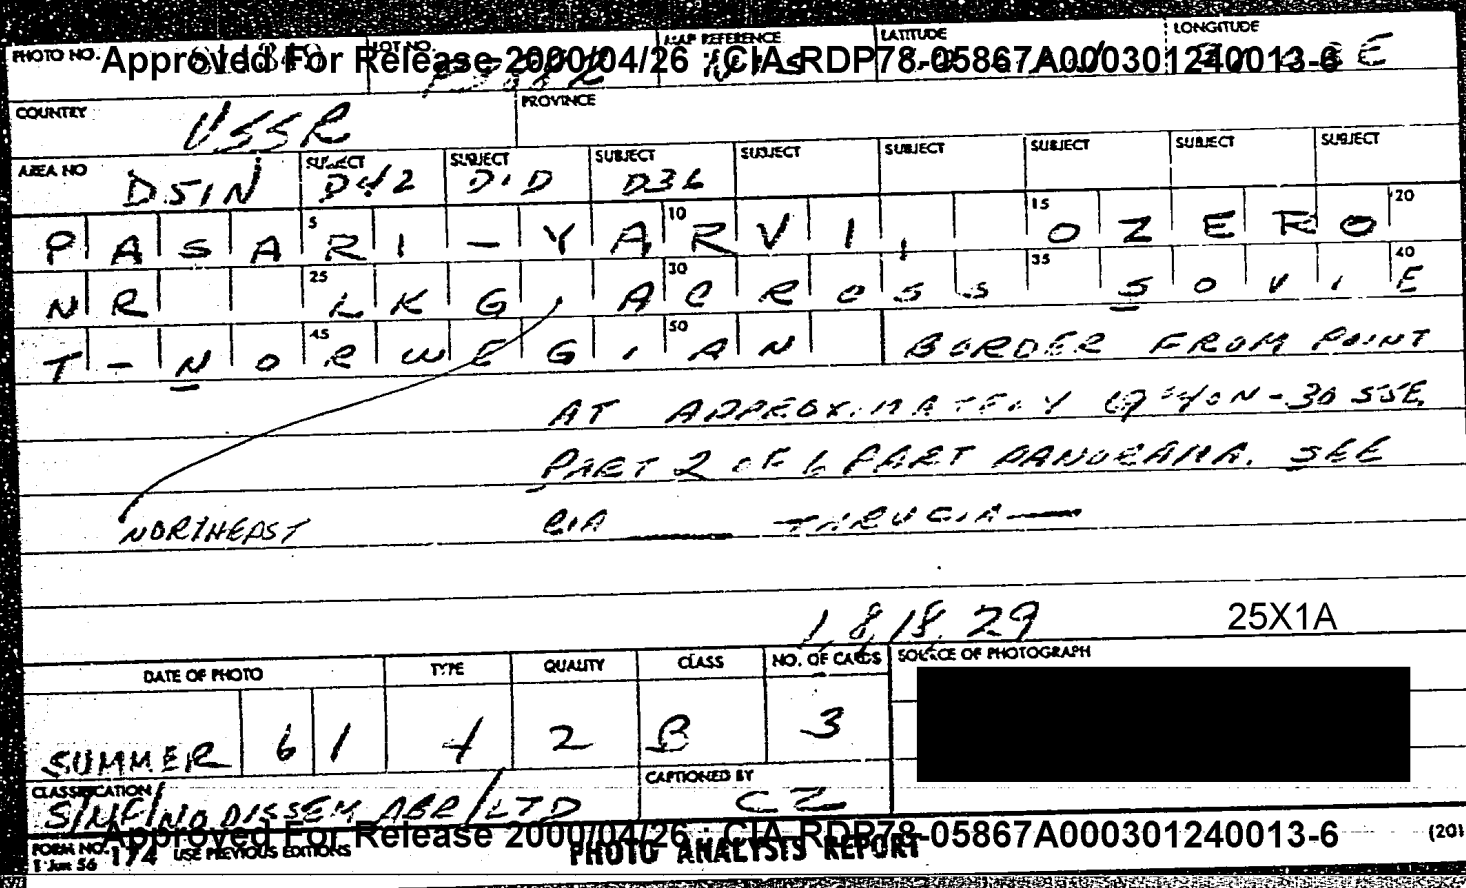 PHOTO NO. LOT NO. MAP REFERENCE LATITUDE LONGITUDE
Approved For Release 2000/04/26 : CIA-RDP78-05867A000301240013-6
E
COUNTRY USSR PROVINCE
AREA NO SUBJECT SUBJECT SUBJECT SUBJECT SUBJECT SUBJECT SUBJECT SUBJECT
D5IN D42 D1D D36
5 10 15 20
PASARI-YARVI, OZERO
25 30 35 40
NR LKG, ACROSS SOVIE
45 50
T-NORWEGIAN BORDER FROM POINT
AT APPROXIMATELY 69-40N-30 55E
PART 2 OF 6 PART PANORAMA. SEE
NORTHEAST CIA ____ THRU CIA ____
1,8,18,29 25X1A
DATE OF PHOTO TYPE QUALITY CLASS NO. OF CARDS SOURCE OF PHOTOGRAPH
SUMMER 61 1 2 B 3
CLASSIFICATION CAPTIONED BY
S/NF/NO DISSEM ABR/LTD CZ
Approved For Release 2000/04/26 : CIA-RDP78-05867A000301240013-6
FORM NO. 174 USE PREVIOUS EDITIONS PHOTO ANALYSIS REPORT (20)
1 Jun 56